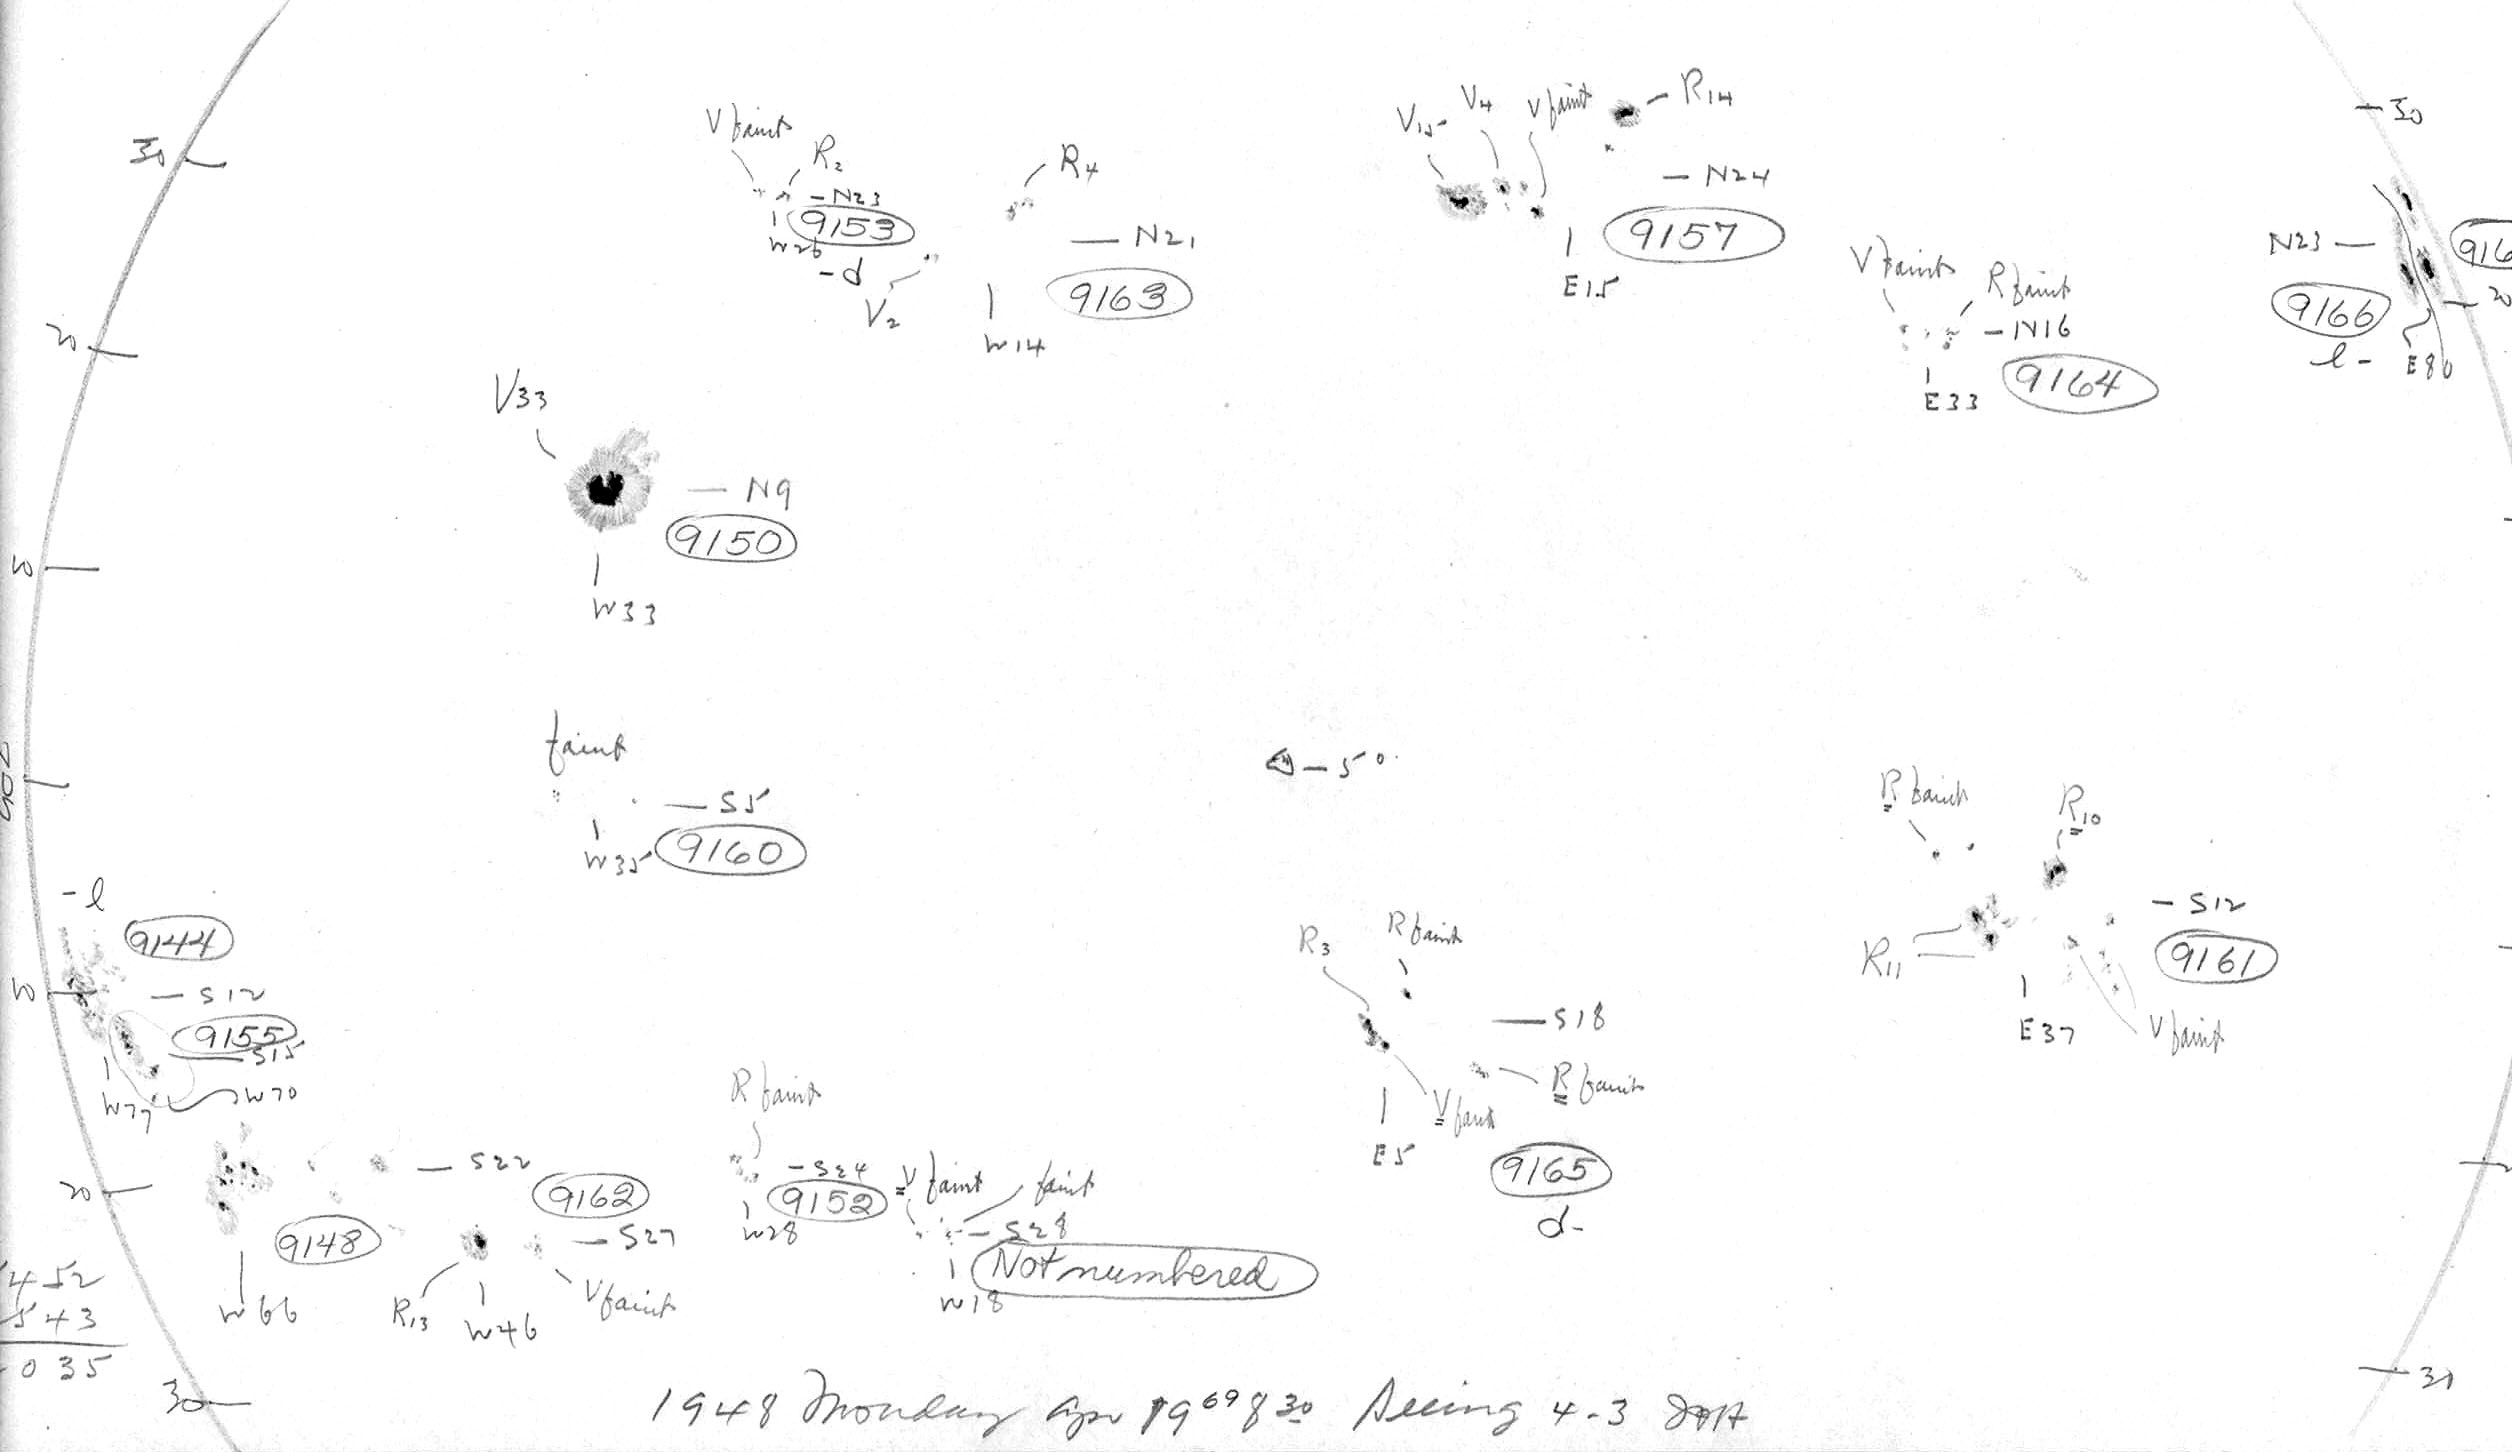 30
V faint
R2
-N23
9153
W26
-d
V2
R4
— N21
9163
W14
V15
V4
V faint
R14
— N24
9157
E15
V faint
R faint
-N16
9164
E33
-30
N23 —
916
20
9166
l-
E80
20
V33
— N9
9150
W33
faint
— S5
9160
W35
-5°
R faint
R10
- S12
9161
R11
E37
V faint
-l
9144
— S12
9155
S15
W77
W70
R3
R faint
— S18
R faint
V faint
E5
9165
d-
— S22
9162
— S27
20
9148
W66
R13
W46
V faint
R faint
-S24
9152
W28
V faint
faint
- S28
Not numbered
W18
452
543
035
30
30
1948 Monday Apr 19 8 30 Seeing 4-3